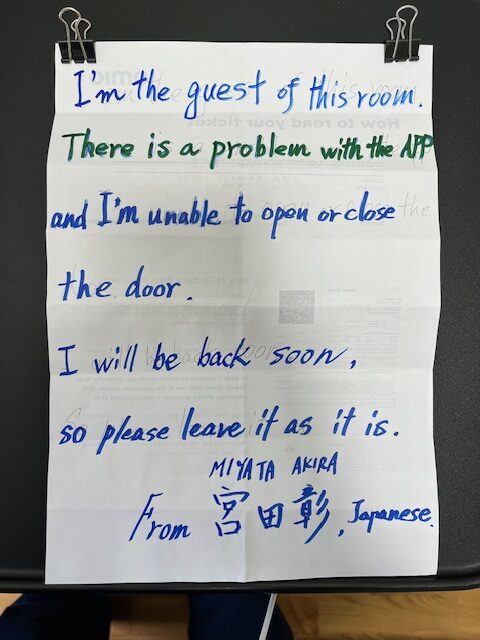 I'm the guest of this room.
There is a problem with the APP
and I'm unable to open or close
the door.
I will be back soon,
so please leave it as it is.
MIYATA AKIRA
From 宮田彰, Japanese.